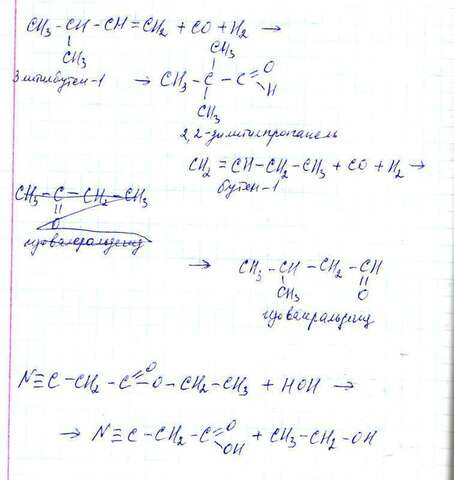 CH₃-CH-CH=CH₂ + CO + H₂ →
CH₃
CH₃
3 метилбутен-1 → CH₃-C-C=O
H
CH₃
2,2-диметилпропаналь
CH₂=CH-CH₂-CH₃ + CO + H₂ →
бутен-1
CH₃-C-CH₂-CH₃
O
изовалеральдегид
→ CH₃-CH-CH₂-CH
CH₃ O
изовалеральдегид
N≡C-CH₂-C=O-O-CH₂-CH₃ + HOH →
→ N≡C-CH₂-C=O OH + CH₃-CH₂-OH